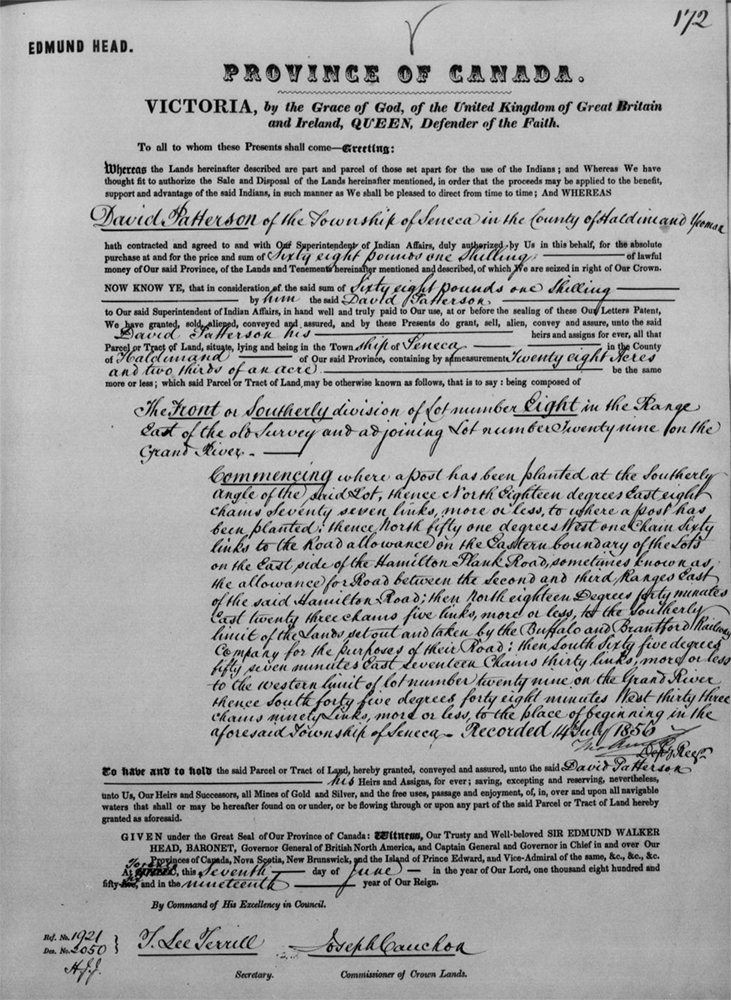 172
EDMUND HEAD.
PROVINCE OF CANADA.
VICTORIA, by the Grace of God, of the United Kingdom of Great Britain
and Ireland, QUEEN, Defender of the Faith.
To all to whom these Presents shall come—Greeting:
Whereas the Lands hereinafter described are part and parcel of those set apart for the use of the Indians; and Whereas We have
thought fit to authorize the Sale and Disposal of the Lands hereinafter mentioned, in order that the proceeds may be applied to the benefit,
support and advantage of the said Indians, in such manner as We shall be pleased to direct from time to time; And WHEREAS
David Patterson of the Township of Seneca in the County of Haldimand Yeoman
hath contracted and agreed to and with Our Superintendent of Indian Affairs, duly authorized by Us in this behalf, for the absolute
purchase at and for the price and sum of Sixty eight pounds one Shilling of lawful
money of Our said Province, of the Lands and Tenements hereinafter mentioned and described, of which We are seized in right of Our Crown.
NOW KNOW YE, that in consideration of the said sum of Sixty eight pounds one Shilling
by him the said David Patterson
to Our said Superintendent of Indian Affairs, in hand well and truly paid to Our use, at or before the sealing of these Our Letters Patent,
We have granted, sold, aliened, conveyed and assured, and by these Presents do grant, sell, alien, convey and assure, unto the said
David Patterson his heirs and assigns for ever, all that
Parcel or Tract of Land, situate, lying and being in the Town ship of Seneca in the County
of Haldimand of Our said Province, containing by admeasurement Twenty eight Acres
and two thirds of an acre be the same
more or less; which said Parcel or Tract of Land may be otherwise known as follows, that is to say: being composed of
The Front or Southerly division of Lot number Eight in the Range
East of the old Survey and adjoining Lot number Twenty nine on the
Grand River.
Commencing where a post has been planted at the Southerly
angle of the said Lot, thence North Eighteen degrees East eight
chains Seventy seven links, more or less, to where a post has
been planted; thence North fifty one degrees West one Chain Sixty
links to the Road allowance on the Eastern boundary of the Lots
on the East side of the Hamilton Plank Road, sometimes known as
the allowance for Road between the Second and third Ranges East
of the said Hamilton Road; then North eighteen Degrees forty minutes
East twenty three chains five links, more or less, to the Southerly
limit of the Lands set out and taken by the Buffalo and Brantford Railway
Company for the purposes of their Road; then South Sixty five degrees
fifty seven minutes East seventeen Chains thirty links, more or less
to the western limit of lot number twenty nine on the Grand River
thence South forty five degrees forty eight minutes West thirty three
chains ninety Links, more or less, to the place of beginning in the
aforesaid Township of Seneca. Recorded 14 July 1856
Dep. Reg.
To have and to hold the said Parcel or Tract of Land, hereby granted, conveyed and assured, unto the said David Patterson
his Heirs and Assigns, for ever; saving, excepting and reserving, nevertheless,
unto Us, Our Heirs and Successors, all Mines of Gold and Silver, and the free uses, passage and enjoyment, of, in, over and upon all navigable
waters that shall or may be hereafter found on or under, or be flowing through or upon any part of the said Parcel or Tract of Land hereby
granted as aforesaid.
GIVEN under the Great Seal of Our Province of Canada: Witness, Our Trusty and Well-beloved SIR EDMUND WALKER
HEAD, BARONET, Governor General of British North America, and Captain General and Governor in Chief in and over Our
Provinces of Canada, Nova Scotia, New Brunswick, and the Island of Prince Edward, and Vice-Admiral of the same, &c., &c., &c.
At Toronto, this Seventh day of June in the year of Our Lord, one thousand eight hundred and
fifty- and in the nineteenth year of Our Reign.
By Command of His Excellency in Council.
Ref. No. 1921
Des. No. 2050
T. Lee Terrill
Joseph Cauchon
Secretary.
Commissioner of Crown Lands.